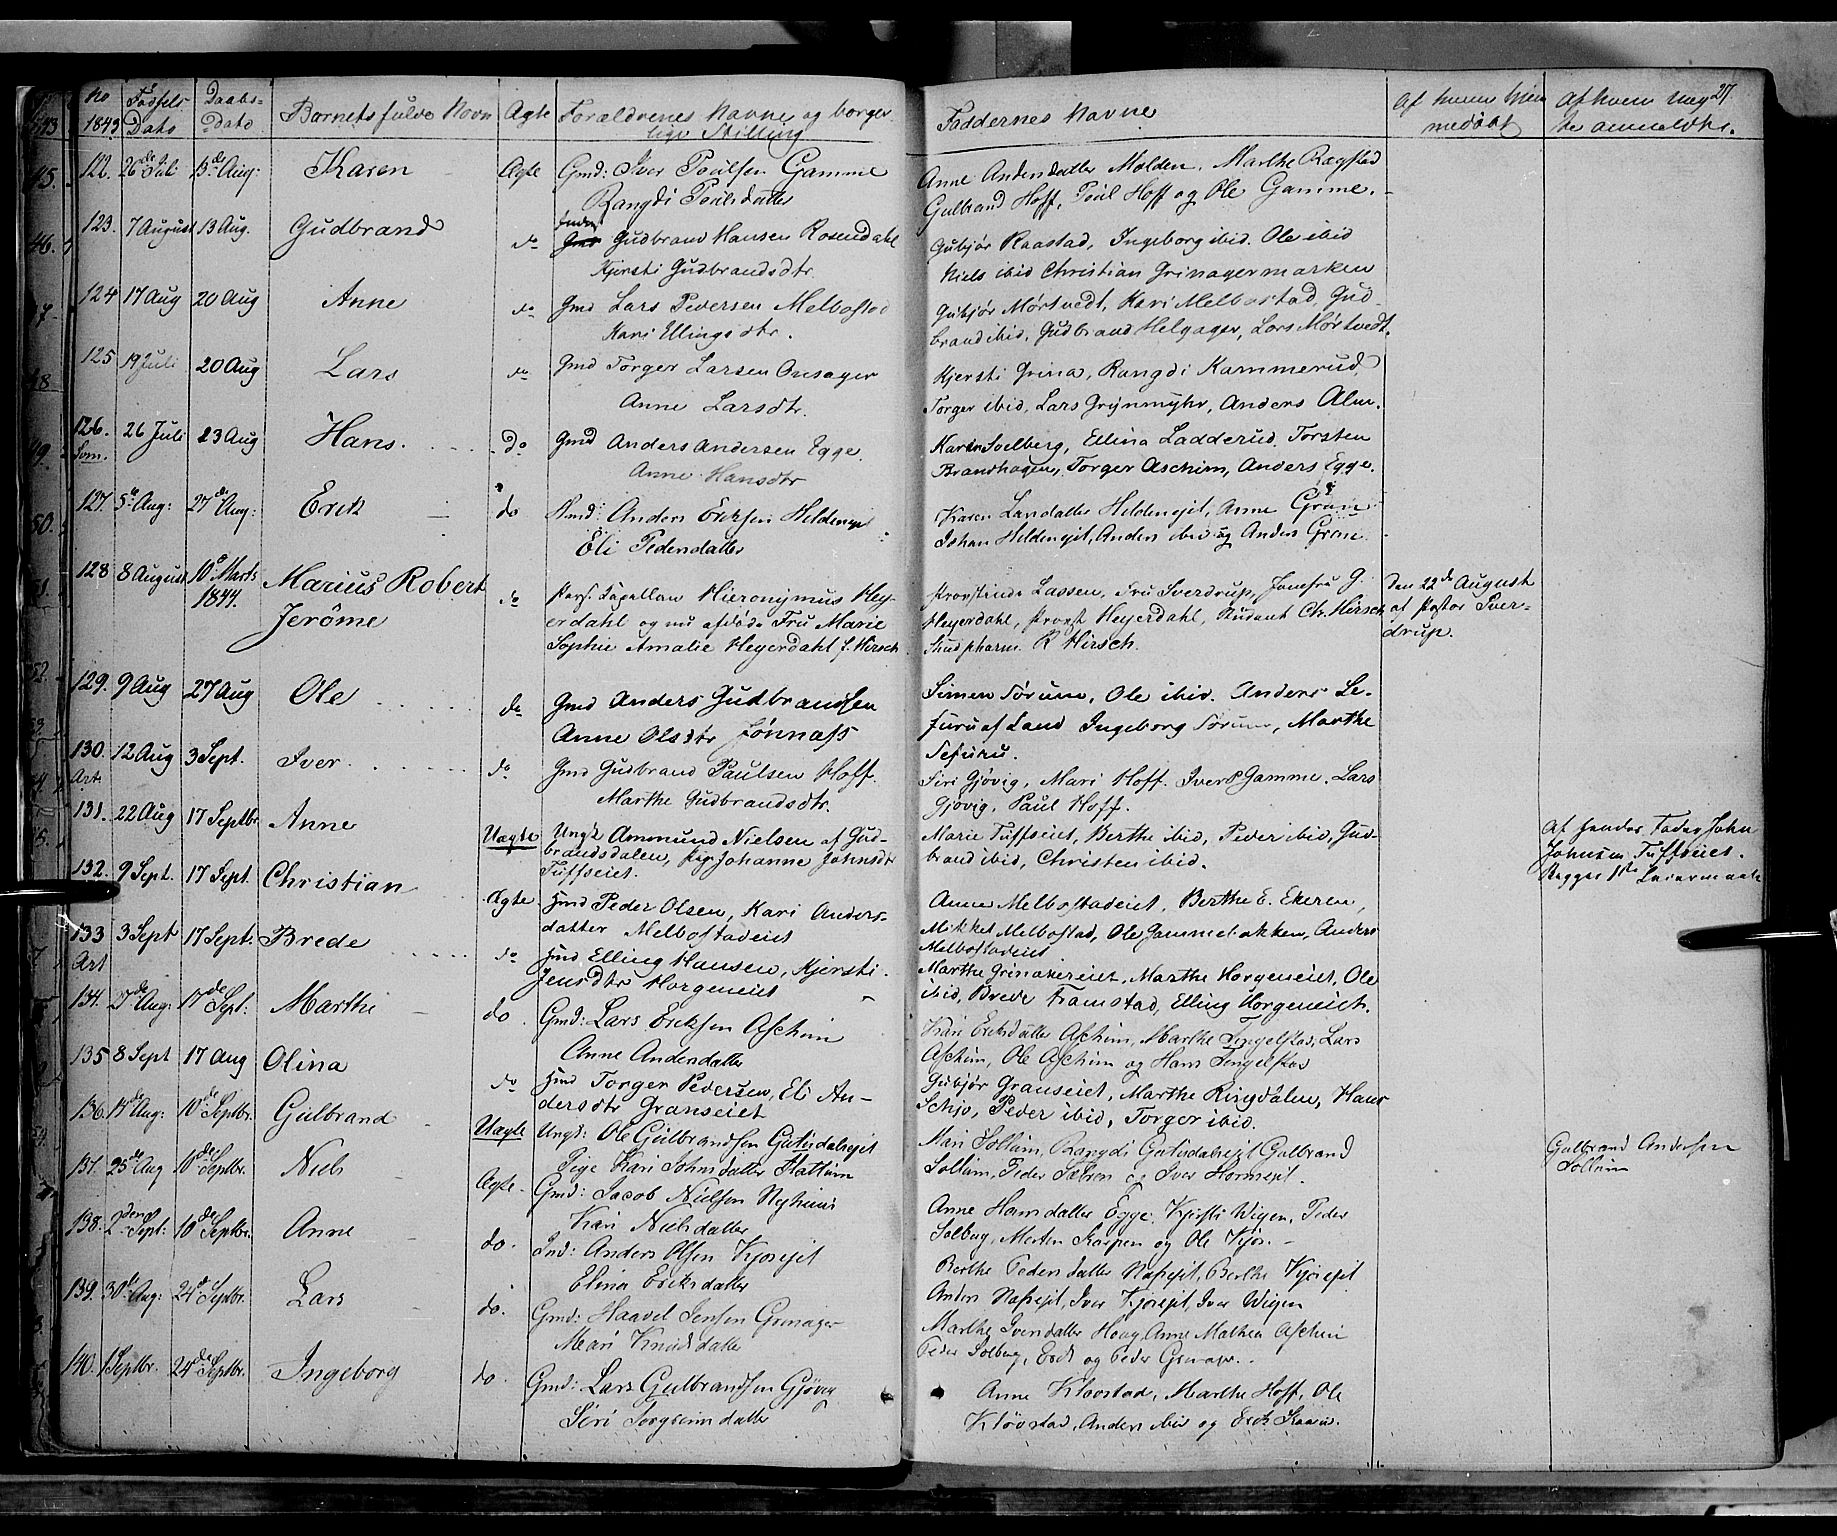 No 1843 Fødsels Dato Daabs-Dato Barnets fulde Navn Ægte Forældrenes Navne og borgerlige Stilling Faddernes Navne Af hvem hjemmedøbt Af hvem Uægte anmeldte. 27
122. 26de Juli 13de Aug: Karen Ægte Gmd: Iver Poulsen Gamme
Rangdi Poulsdatter
Anne Andersdatter Molden, Marthe Rægstad
Gulbrand Hoff, Poul Hoff og Ole Gamme.
123. 7 August 13 Aug. Gudbrand do Gudbrand Hansen Rosendahl
Kjersti Gudbrandsdtr.
Gubjør Raastad, Ingeborg ibid. Ole ibid
Niels ibid Christian Grinagermarken
124 17 Aug 20 Aug Anne do Gmd Lars Pedersen Melbostad
Kari Ellingsdtr.
Gubjør Mørtvedt, Kari Melbostad, Gud-
brand ibid, Gudbrand Helgager, Lars Mørtvedt.
125 19 Juli 20 Aug Lars do Gmd Torger Larsen Onsager
Anne Larsdtr.
Kjersti Grina, Rangdi Kammerud,
Torger ibid, Lars Grinmyhr, Anders Alm.
126. Som. 26 Juli 23 Aug Hans. Do Gmd Anders Andersen Egge.
Anne Hansdtr
Karen Soelberg, Ellina Ladderud, Torsten
Brandhagen, Torger Aschim, Anders Egge.
127. 5te Aug: 27de Aug: Erik do Hmd: Anders Eriksen Helden
Eli Pedersdatter
Karen Larsdatter Heldenejet, Anne Gran
Johan Heldenejet, Anders ibid og Anders Gran.
128 8 August 10de Marts 1844. Marius Robert
Jeróme
do Pers. Capellan Hieronymus Hey-
erdahl og nu afdøde Fru Marie
Sophie Amalie Heyerdahl f. Hirsch
Provstinde Lassen, Fru Sverdrup, Jomfru G.
Heyerdahl, Provst Heyerdahl, Student Ch. Hirsch
Stud pharm. R Hirsch.
Den 22de August
af Pastor Sver-
drup.
129. 9 Aug 27 Aug Ole do Gmd Anders Gudbrandsen
Anne Olsdtr Jønnass
Simen Sørum, Ole ibid. Anders Se-
furu af Land Ingeborg Sørum, Marthe
Sefuru.
130. Art. 12 Aug 3 Sept. Iver do Gmd Gudbrand Paulsen Hoff.
Marthe Gudbrandsdtr.
Siri Gjøvig, Mari Hoff. Iver P Gamme. Lars
Gjøvig, Paul Hoff.
131. 22 Aug 17 Septbr Anne Uægte Ungk. Ammund Nielsen af Gud-
brandsdalen, Pige Johanne Johnsdtr
Tuffseiet.
Marie Tuffseiet, Berthe ibid, Peder ibid, Gud-
brand ibid, Christen ibid.
Af hendes Fader John
Johnsen Tuffseiet.
Begges 1ste Leiermaal
132. 9 Sept. 17 Sept. Christian Ægte Hmd Peder Olsen, Kari Anders-
datter Melbostadeiet
Anne Melbostadeiet, Berthe E. Ekeren,
Mikkel Melbostad, Ole Gammebakken, Anders
Melbostadeiet
133 Art 3 Sept 17 Sept. Brede do Hmd Elling Hansen, Kjersti
Jensdtr Horgeneiet
Marthe Grinakereiet, Marthe Horgeneiet, Ole
ibid, Brede Framstad, Elling Horgeneiet.
134. 27de Aug: 17de Sept: Marthe do Gmd: Lars Eriksen Aschim
Anne Andersdatter
Kari Eriksdatter Aschim, Marthe Tingelstad, Lars
Aschim, Ole Aschim og Hans Tingelstad
135 8 Sept 17 Aug Olina do Hmd Torger Pedersen, Eli An-
dersdtr Granseiet
Gubjør Granseiet, Marthe Ringdalen, Hans
Schjo, Peder ibid, Torger ibid.
136. 14de Aug: 10de Septbr. Gulbrand Uægte Ungk: Ole Gulbrandsen Gutisdalsejet
Pige Kari Johnsdatter Flattum
Mari Sollum, Rangdi Gutisdalsejet Gulbrand
Sollum, Peder og Iver
Gulbrand Andersen
Sollum
137. 25de Aug 10de Septbr. Niels Ægte Gmd: Jacob Nielsen
Kari Nielsdatter
Anne Hansdatter Egge, Kjersti Wigen, Peder
Solberg, Morten og Ole Kjos.
138. 2den Sept: 10de Septbr. Anne do. Ind: Anders Olsen Kjosejet
Elina Eriksdatter
Berthe Pedersdatter Næsejet, Berthe Kjosejet
Anders Næsejet, Iver Kjosejet, Iver Wigen
139. 30de Aug: 24de Septbr. Lars do. Gmd: Haavel Jensen Grinager
Mari Knudsdatter
Marthe Iversdatter Haag, Anne Mathea Aschim
Peder Solberg, Erik og Peder Grinager.
140. 1 Septbr. 24de Septbr. Ingeborg do. Gmd: Lars Gulbrandsen Gjøvig
Siri Torgrimsdatter
Anne Kløvstad, Marthe Hoff, Ole
Kløvstad, Anders ibid og Erik